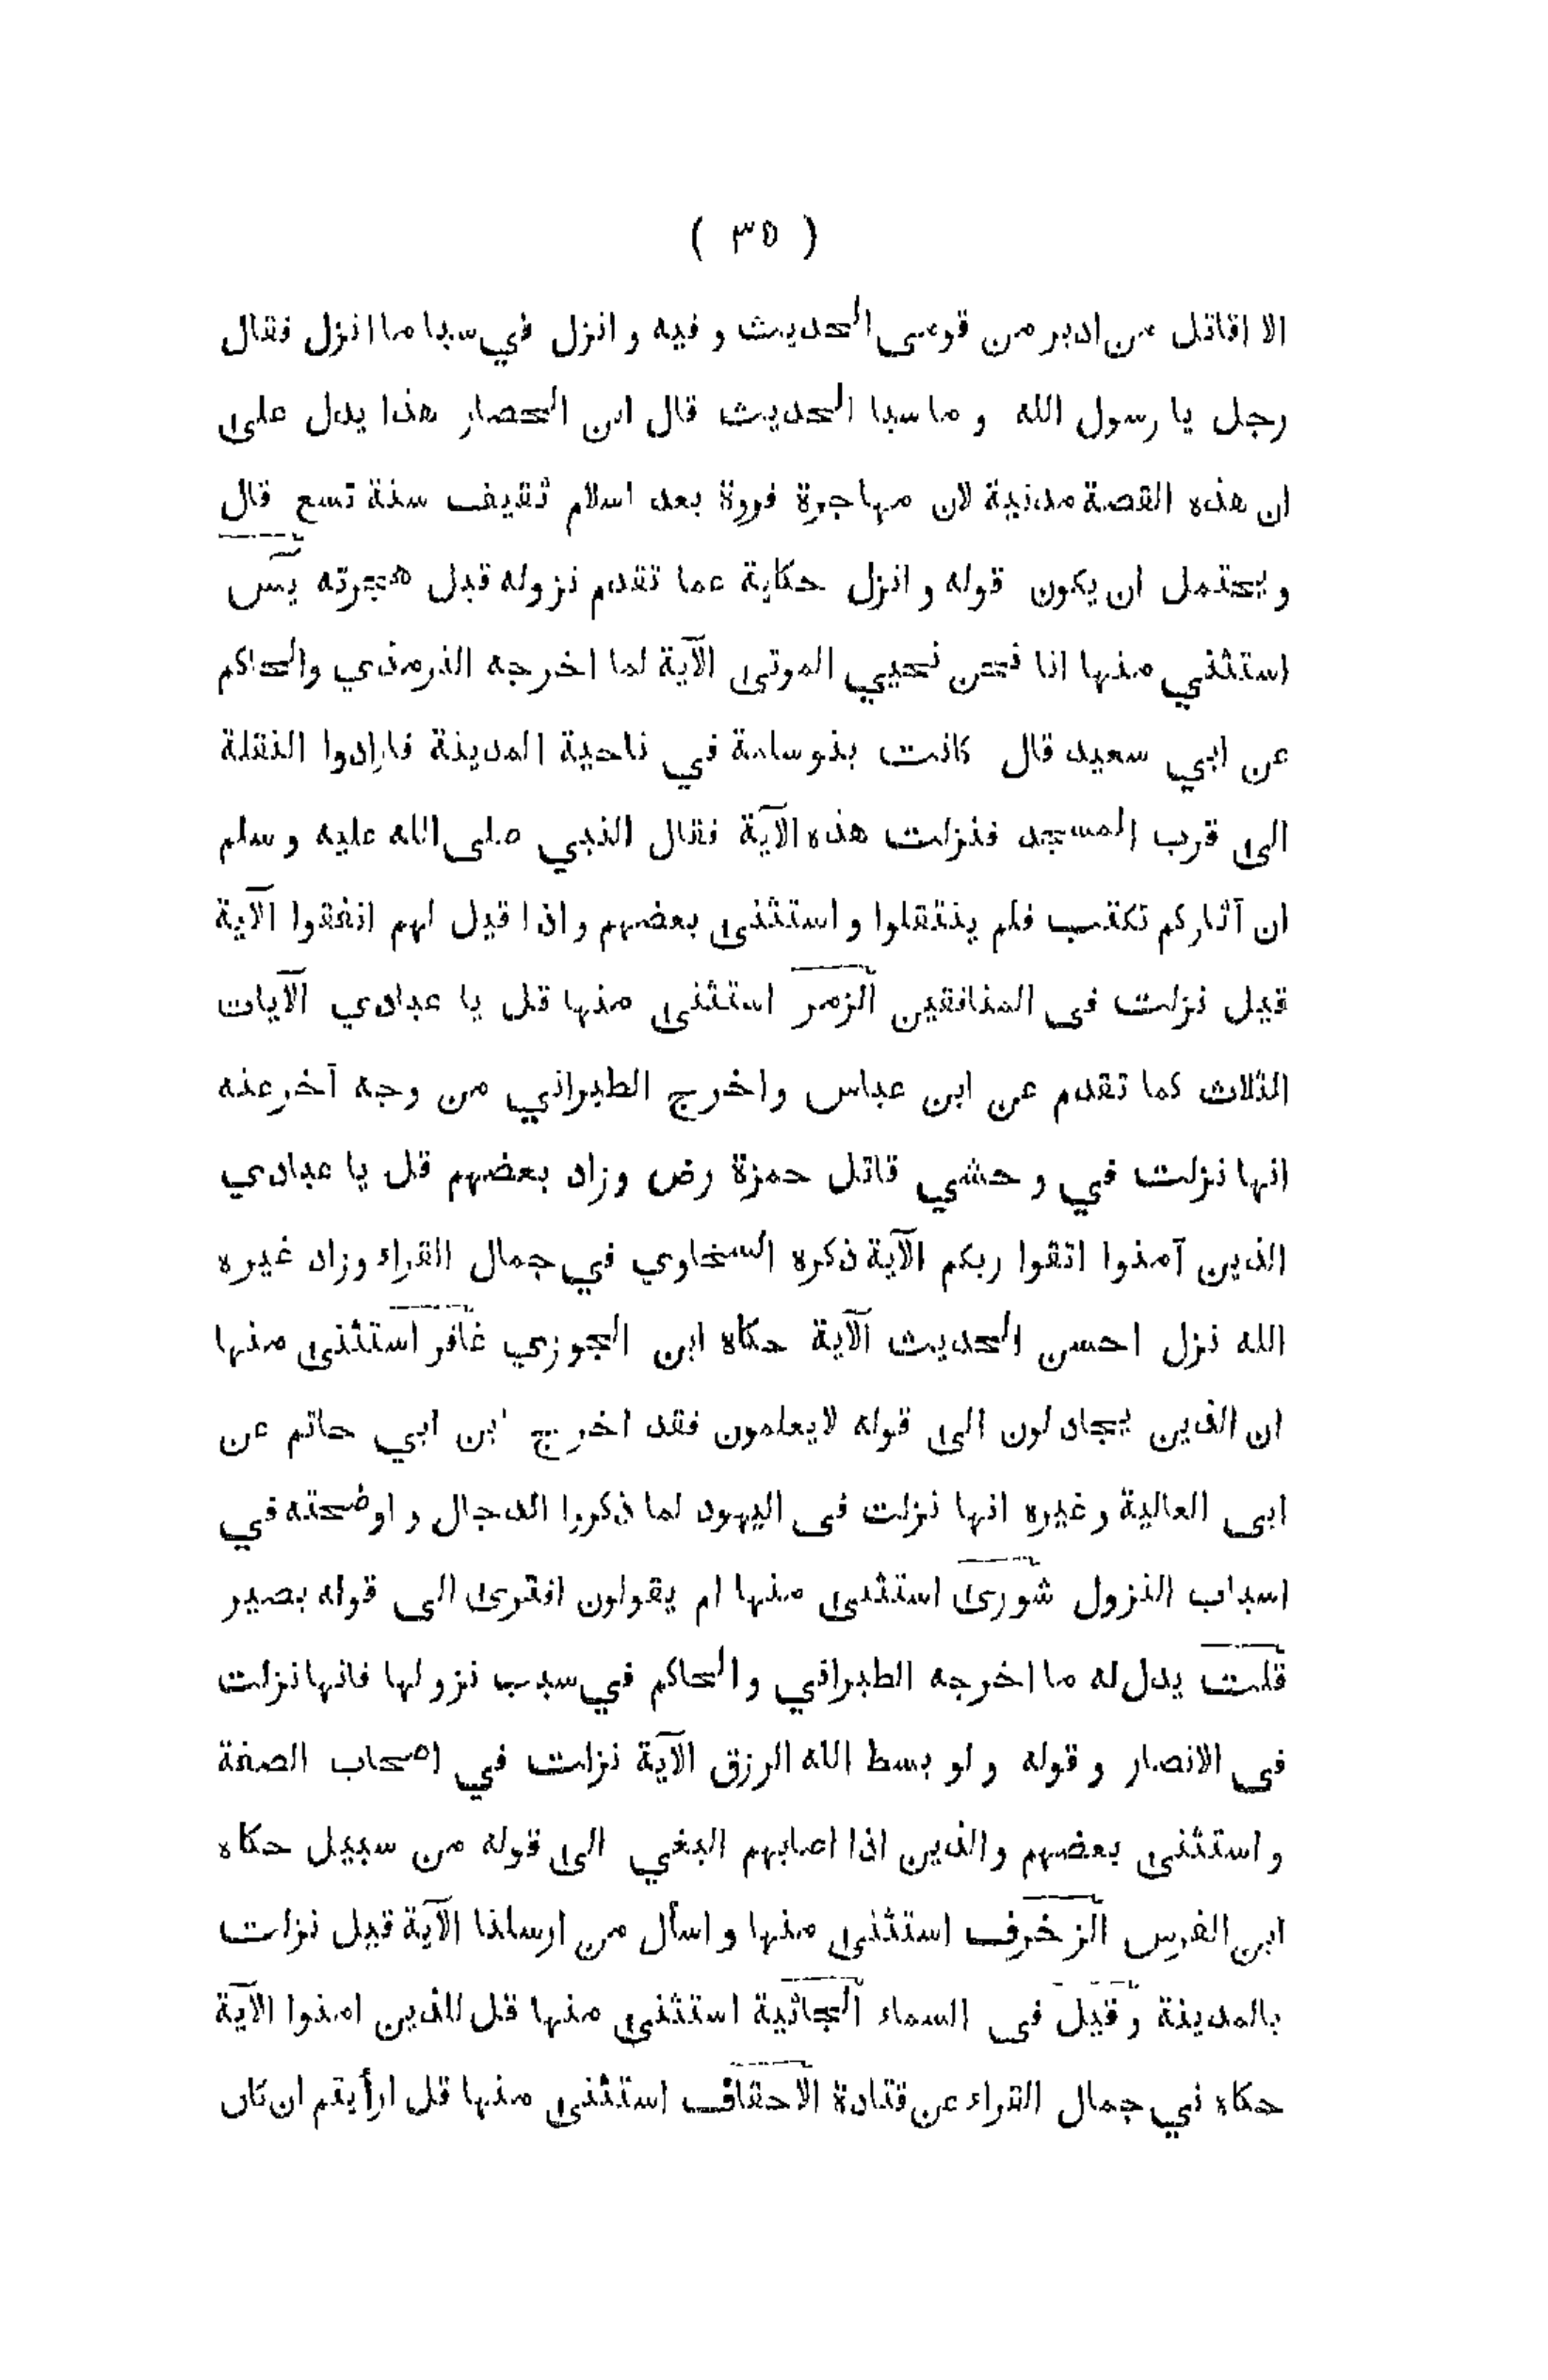 ( ٣٥ )
الا اقاتل من ادبر من قومى الحديث و فيه و انزل في سبا ما انزل فقال
رجل يا رسول الله و ما سبا الحديث قال ابن الحصار هذا يدل على
ان هذه القصة مدنية لان مهاجرة فروة بعد اسلام ثقيف سنة تسع قال
و يحتمل ان يكون قوله و انزل حكاية عما تقدم نزوله قبل هجرته يس
استثني منها انا نحن نحيي الموتى الآية لما اخرجه الترمذي والحاكم
عن ابي سعيد قال كانت بنو سلمة في ناحية المدينة فارادوا النقلة
الى قرب المسجد فنزلت هذه الآية فقال النبي صلى الله عليه و سلم
ان آثاركم تكتب فلم ينتقلوا و استثنى بعضهم و اذا قيل لهم انفقوا الآية
قيل نزلت فى المنافقين الزمر استثنى منها قل يا عبادي الآيات
الثلاث كما تقدم عن ابن عباس و اخرج الطبراني من وجه آخر عنه
انها نزلت في و حشي قاتل حمزة رض و زاد بعضهم قل يا عبادي
الذين آمنوا اتقوا ربكم الآية ذكره السخاوي في جمال القراء و زاد غيره
الله نزل احسن الحديث الآية حكاه ابن الجوزي غافر استثنى منها
ان الذين يجادلون الى قوله لايعلمون فقد اخرج ابن ابي حاتم عن
ابى العالية و غيره انها نزلت فى اليهود لما ذكروا الدجال و اوضحته في
اسباب النزول شورى استثنى منها ام يقولون افترى الى قوله بصير
قلت يدل له ما اخرجه الطبراني و الحاكم في سبب نزولها فانها نزلت
فى الانصار و قوله و لو بسط الله الرزق الآية نزلت في اصحاب الصفة
و استثنى بعضهم و الذين اذا اصابهم البغي الى قوله من سبيل حكاه
ابن الفرس الزخرف استثنى منها و اسأل من ارسلنا الآية قيل نزلت
بالمدينة و قيل فى السماء الجاثية استثنى منها قل للذين امنوا الآية
حكاه في جمال القراء عن قتادة الاحقاف استثنى منها قل ارأيتم ان كان